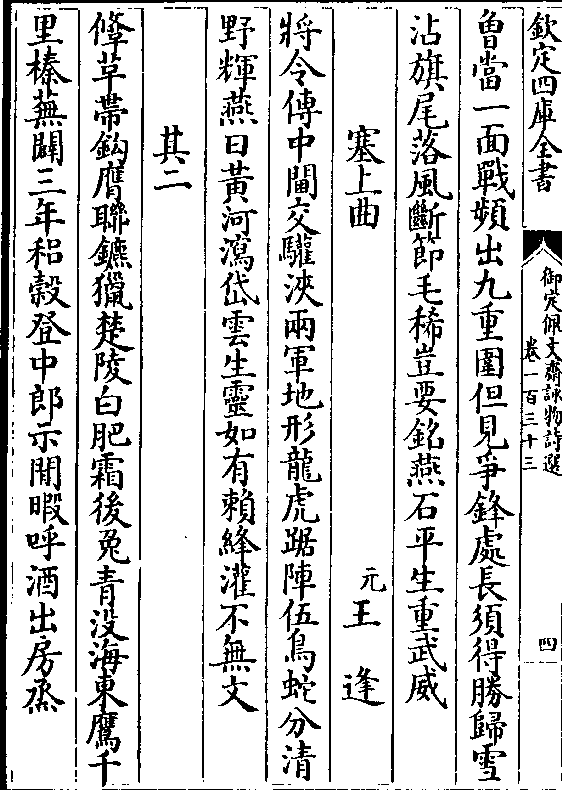 欽定四庫全書
御定佩文齋詠物詩選
卷一百三十三
四
曾當一面戰頻出九重圍但見爭鋒處長須得勝歸雪
沾旗尾落風斷節毛稀豈要銘燕石平生重武威
塞上曲
元王逢
將令傳中閫交驩浹兩軍地形龍虎踞陣伍鳥蛇分清
野輝燕日黃河瀉岱雲生靈如有賴絳灌不無文
其二
修草帶鈎膺聯鑣獵楚陵白肥霜後兔青没海東鷹千
里榛蕪闢三年稆穀登中郎示閒暇呼酒出房烝